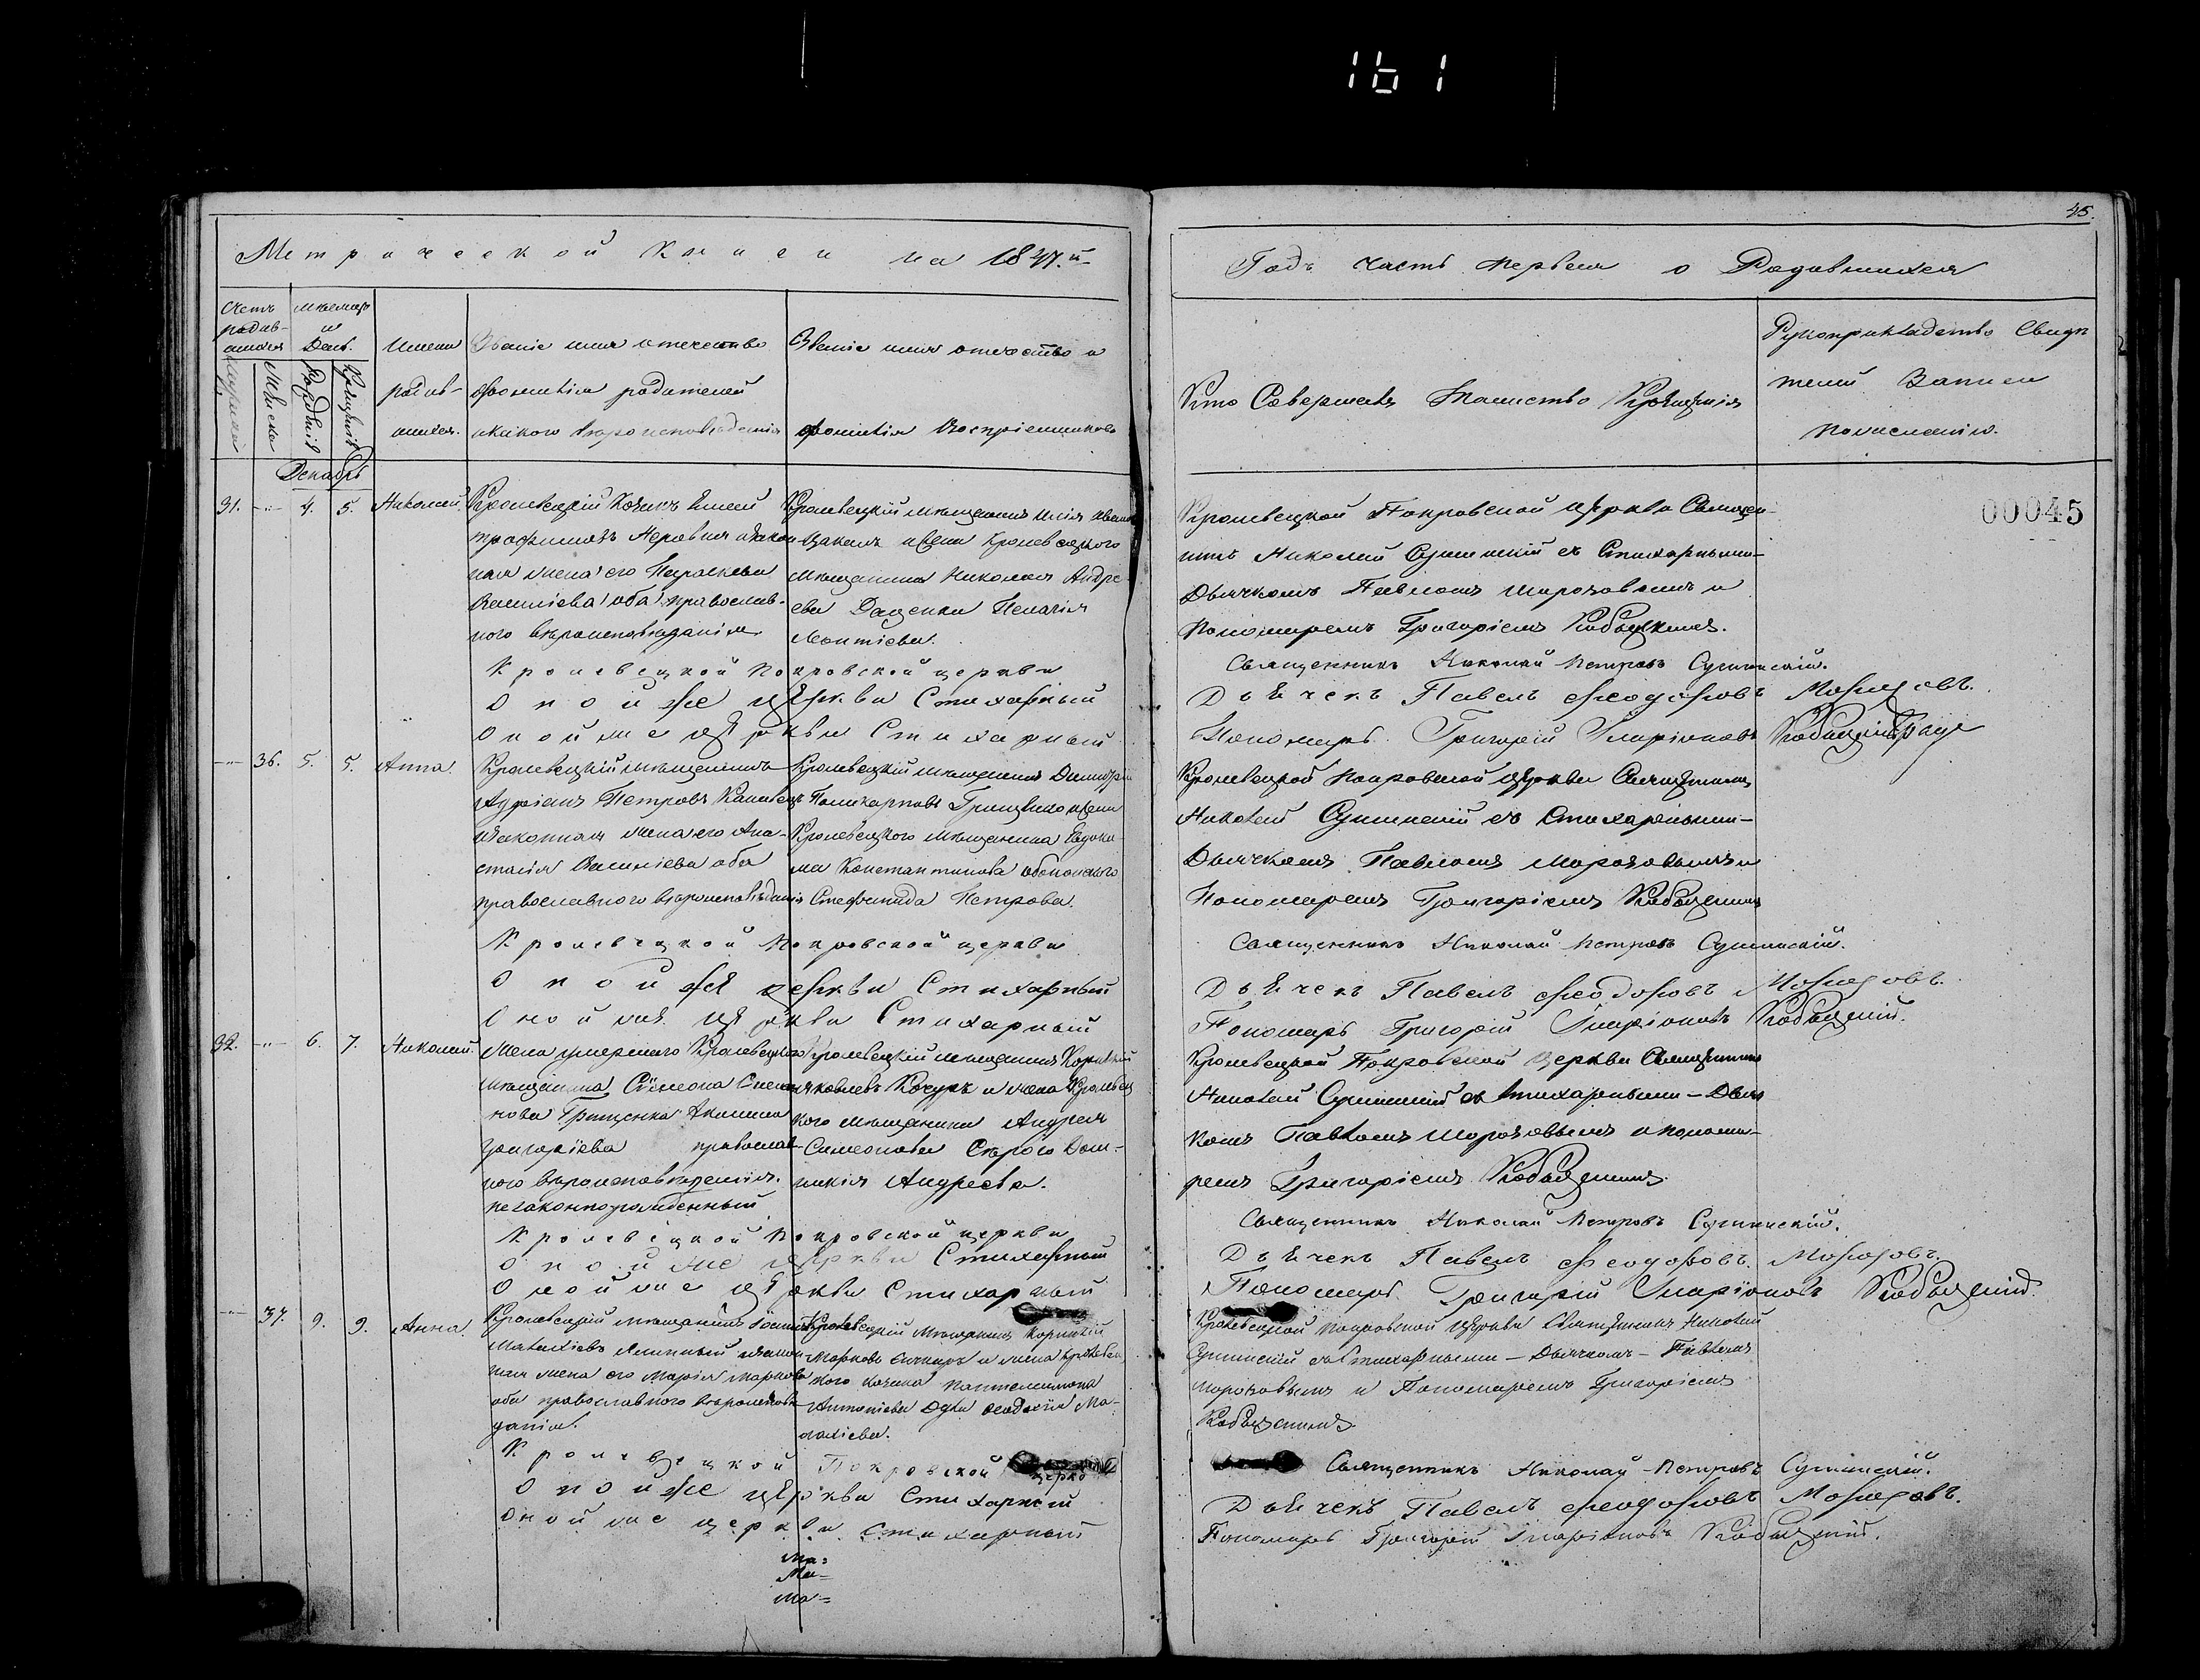 161
45.
Метрической Книги на 1847.й
Годъ часть первая о Родившихся
Счетъ родив-шихся
Мѣсяцъ и День.
Имена родив-шихся.
Званіе имя отечество
фамилія родителей
и какого вѣроисповѣданія
Званіе имя отечество и
фамилія Воспріемниковъ
Кто Совершалъ Таинство Крещенія
Рукоприкладство Свидѣ
телей Записи
по желанію.
Декабрь
00045
31. -"- 4. 5. Николай.
Кролевецкій Козакъ
Трофимовъ и закон
ная жена его Параскева
Василіева оба православ-
ного вѣроисповѣданія
Кролевецкій мѣщанинъ Илія
Кролевецкого
мѣщанина Николая Андре-
ева Даценка Пелагія
Леонтіева.
Кролевецкой Покровской церкви Священ-
никъ Николай Сушинскій съ Стихарными-
Дьячкомъ Павломъ Морозовымъ и
Пономаремъ Григоріемъ
Кролевецкой Покровской церкви Священникъ Николай Петровъ Сушинскій.
Оной же церкви Стихарный Дьячекъ Павелъ Феодоровъ Морозовъ.
Оной же церкви Стихарный Пономарь Григорій Иларіоновъ
-"- 36. 5. 5. Анна.
Кролевецкій мѣщанинъ
Петровъ
и законная жена его Ана-
стасія Василіева оба
православного вѣроисповѣданія
Кролевецкій мѣщанинъ Димитрій
Поликарповъ
Кролевецкого мѣщанина Евдоки-
ма Константинова
Стефанида Петрова.
Кролевецкой Покровской церкви Священникъ
Николай Сушинскій съ Стихарными-
Дьячкомъ Павломъ Морозовымъ и
Пономаремъ Григоріемъ
Кролевецкой Покровской церкви Священникъ Николай Петровъ Сушинскій.
Оной же церкви Стихарный Дьячекъ Павелъ Феодоровъ Морозовъ.
Оной же церкви Стихарный Пономарь Григорій Иларіоновъ
32. -"- 6. 7. Николай.
Жена умершаго Кролевецкого
мѣщанина Сѵмеона
Грищенка Акилина
Григоріева православ-
ного вѣроисповѣданія.
незаконнорожденный
Кролевецкій мѣщанинъ Корнилій
Яковлевъ Кочуръ и жена Кролевец
кого мѣщанина Андрея
Симеонова Сѣрого Дом-
никія Андреева.
Кролевецкой Покровской Церкви Священникъ
Николай Сушинскій съ стихарными-Дьяч
комъ Павломъ Морозовымъ и понома-
ремъ Григоріемъ
Кролевецкой Покровской церкви Священникъ Николай Петровъ Сушинскій.
Оной же церкви Стихарный Дьячекъ Павелъ Феодоровъ Морозовъ.
Оной же церкви Стихарный Пономарь Григорій Иларіоновъ
-"- 37. 9. 9. Анна.
Кролевецкій мѣщанинъ
Малахіевъ и закон
ная жена его Марія Маркова
оба православного вѣроисповѣ
данія.
Кролевецкій Мѣщанинъ Корнилій
Марковъ и жена Кролевец
кого козака Пантелеимона
Антоніева Феодосія Ма-
лахіева.
Кролевецкой Покровской церкви Священникъ Николай
Сушинскій съ Стихарными-Дьячкомъ-Павломъ
Морозовымъ и Пономаремъ Григоріемъ
Кролевецкой Покровской церкви Священникъ Николай Петровъ Сушинскій.
Оной же церкви Стихарный Дьячекъ Павелъ Феодоровъ Морозовъ.
Оной же церкви Стихарный Пономарь Григорій Иларіоновъ